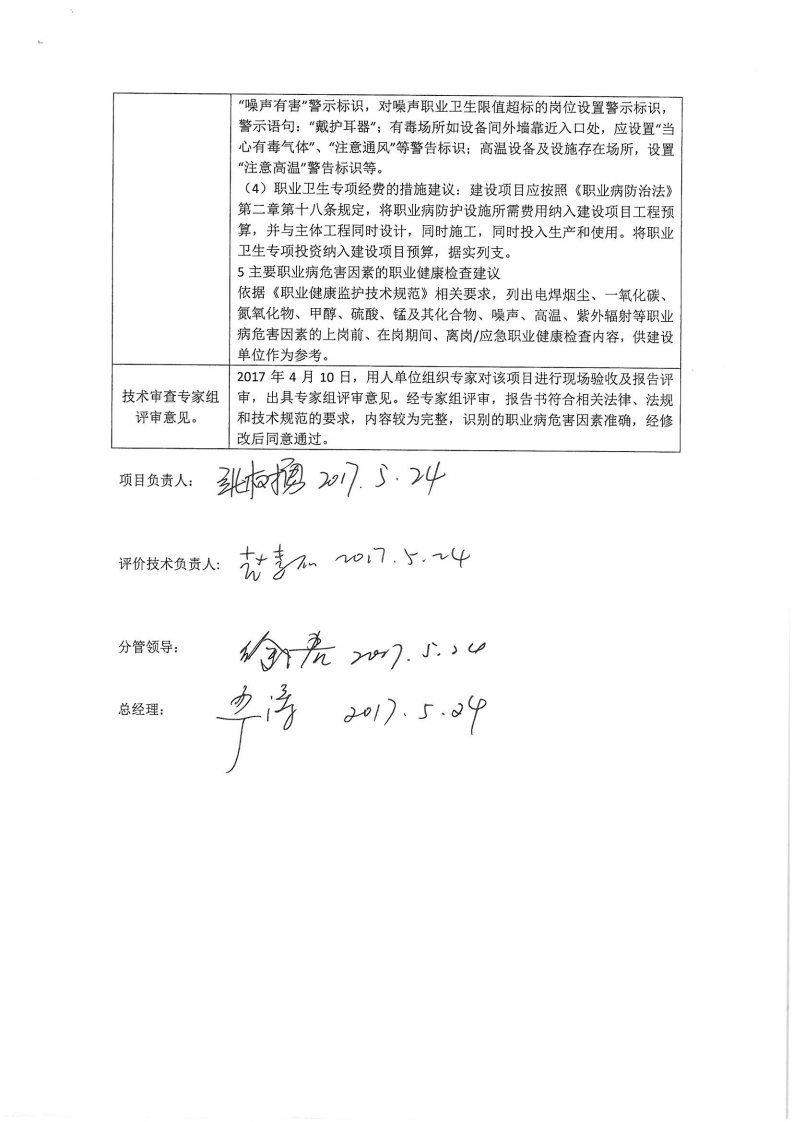 “噪声有害”警示标识，对噪声职业卫生限值超标的岗位设置警示标识，
警示语句：“戴护耳器”；有毒场所如设备间外墙靠近入口处，应设置“当
心有毒气体”、“注意通风”等警告标识；高温设备及设施存在场所，设置
“注意高温”警告标识等。
（4）职业卫生专项经费的措施建议：建设项目应按照《职业病防治法》
第二章第十八条规定，将职业病防护设施所需费用纳入建设项目工程预
算，并与主体工程同时设计，同时施工，同时投入生产和使用。将职业
卫生专项投资纳入建设项目预算，据实列支。
5 主要职业病危害因素的职业健康检查建议
依据《职业健康监护技术规范》相关要求，列出电焊烟尘、一氧化碳、
氮氧化物、甲醇、硫酸、锰及其化合物、噪声、高温、紫外辐射等职业
病危害因素的上岗前、在岗期间、离岗/应急职业健康检查内容，供建设
单位作为参考。
技术审查专家组
评审意见。
2017 年 4 月 10 日，用人单位组织专家对该项目进行现场验收及报告评
审，出具专家组评审意见。经专家组评审，报告书符合相关法律、法规
和技术规范的要求，内容较为完整，识别的职业病危害因素准确，经修
改后同意通过。
项目负责人： 2017.5.24
评价技术负责人: 2017.5.24
分管领导： 2017.5.24
总经理： 2017.5.24